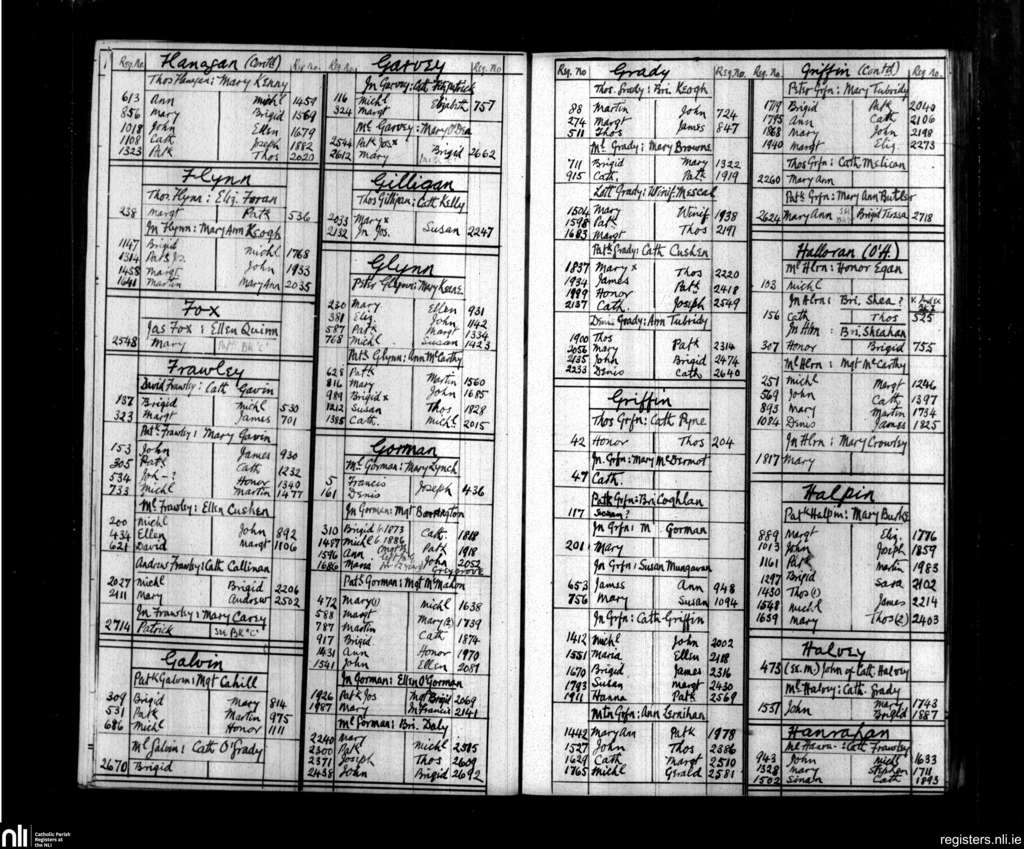 Reg. No Flanagan (Contd) Reg. no.
Thos Flanagan : Mary Kenny
613 Ann Michl 1459
856 Mary Brigid 1569
1018 John Ellen 1679
1108 Cath Joseph 1882
1323 Patk Thos 2020
Flynn
Thos Flynn : Eliz. Foran
238 Margt Patk 536
Jn Flynn : Mary Ann Keogh
1147 Brigid Michl 1768
1314 John 1933
1458 Margt Mary Ann 2035
1641 Martin
Fox
Jas Fox : Ellen Quinn
2548 Mary
Frawley
David Frawley : Cath Gavin
137 Brigid Michl 530
323 Margt James 701
Patk Frawley : Mary Gavin
153 John James 930
305 Patk Cath 1232
534 Joh - ? Honor 1340
733 Michl Martin 1477
Ml Frawley : Ellen Cushen
200 Michl John 892
434 Ellen Margt 1106
621 David
Andrew Frawley : Cath Callinan
2027 Michl Brigid 2206
2111 Mary Andrew 2502
Jn Frawley : Mary Carey
2714 Patrick See Bk "C"
Galvin
Patk Galvin : Mgt Cahill
309 Brigid Mary 814
531 Patk Martin 975
686 Michl Honor 1111
Ml Galvin : Cath O'Grady
2670 Brigid
Reg. No. Garvey Reg. No
Jn Garvey : Cath Fitzpatrick
116 Michl Elizabeth 757
324 Margt
Ml Garvey : Mary O'Dea
2544 Patk Jos x Brigid 2662
2612 Mary
Gilligan
Thos Gilligan : Cath Kelly
2033 Mary x Susan 2247
2132 Jn Jos.
Glynn
Peter Glynn : Mary Keane
230 Mary Ellen 931
381 Eliz. John 1142
587 Patk Margt 1334
768 Michl Susan 1423
Patk Glynn : Ann McCarthy
628 Patk Martin 1560
816 Mary John 1685
989 Brigid x Thos 1828
1212 Susan Michl 2015
1385 Cath.
Gorman
Ml Gorman : Mary Lynch
5 Francis Joseph 436
161 Denis
Jn Gorman : Mgt Bonnington
310 Brigid b. 1873 Cath. 1818
1487 Michl b. 1886 Patk 1918
1596 Ann John 2052
1686 Maria Greygrove
Patk Gorman : Mgt McMahon
472 Mary (1) Michl 1638
588 Margt Mary (2) 1739
787 Martin Cath 1874
917 Brigid Honor 1970
1431 Ann Ellen 2087
1541 John
Jn Gorman : Ellen O'Gorman
1926 Patk Jos Mgt Brigid 2069
1987 Mary M Francis 2141
Ml Gorman : Bri. Daly
2240 Mary Michl 2515
2300 Patk Thos 2609
2371 Joseph Brigid 2692
2438 John
Reg. No Grady Reg No.
Thos. Grady : Bri. Keogh
88 Martin John 724
274 Margt James 847
511 Thos
Ml Grady : Mary Browne
711 Brigid Mary 1322
915 Cath. Patk 1919
Lott Grady : Winif. Mescal
1504 Mary Winif 1938
1598 Patk Thos 2191
1683 Margt
Patk Grady : Cath Cushen
1837 Mary x Thos 2220
1934 James Patk 2418
1999 Honor Joseph 2549
2137 Cath.
Denis Grady : Ann Tubridy
1900 Thos Patk 2314
2056 Mary Brigid 2474
2135 John Cath 2640
2233 Denis
Griffin
Thos Grfn : Cath Pyne
42 Honor Thos 204
Jn. Grfn : Mary McDermot
47 Cath.
Patk Grfn : Bri Coghlan
117 Susan ?
Jn Grfn : M Gorman
201 Mary
Jn Grfn : Susan Mungovan
653 James Ann 948
756 Mary Susan 1094
Jn Grfn : Cath Griffin
1412 Michl John 2002
1551 Maria Ellen 2118
1670 Brigid James 2316
1793 Susan Margt 2430
1911 Hanna Patk 2569
Mtn Grfn : Ann Lernihan
1442 Mary Ann Patk 1978
1527 John Thos 2386
1629 Cath Margt 2510
1765 Michl Gerald 2581
Reg. No. Griffin (Contd) Reg no.
Peter Grfn : Mary Tubridy
1719 Brigid Patk 2040
1795 Ann Cath 2106
1868 Mary John 2198
1940 Margt Eliz. 2273
Thos Grfn : Cath
2260 Mary Ann
Patk Grfn : Mary Ann Butler
2624 Mary Ann Brigid Tressa 2718
Halloran (O'H.)
Ml Hlrn : Honor Egan
103 Michl
Jn Hlrn : Bri. Shea ?
156 Cath Thos 325
Jn Hlrn : Bri. Sheahan
307 Honor Brigid 755
Ml Hlrn : Mgt McCarthy
251 Michl Margt 1246
569 John Cath 1397
893 Mary Martin 1734
1084 Denis James 1825
Jn Hlrn : Mary Crowley
1817 Mary
Halpin
Patk Halpin : Mary Burke
889 Margt Eliz. 1776
1013 John Joseph 1859
1161 Patk Martin 1983
1297 Brigid Sara 2102
1430 Thos (1) James 2214
1548 Michl Thos (2) 2403
1659 Mary
Halvey
473 (Ss. M.) John of Cath. Halvey
Ml Halvey : Cath. Grady
1557 John Mary 1743
Brigid 1887
Hanrahan
Ml Hanra- : Cath Frawley
943 John Michl 1633
1328 Mary Stephen 1711
1502 Susan Cath 1893
nli
Catholic Parish
Registers at
the NLI
registers.nli.ie